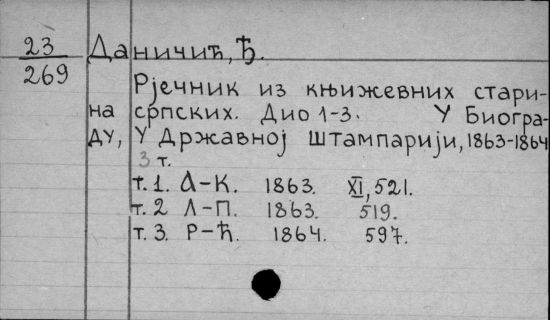 23
269
Даничић, Ђ.
Рјечник из књижевних стари-
на српских. Дио 1-3. У Биогра-
ду, У Државној штампарији, 1863-1864
3 т.
т. 1. А-К. 1863. XI, 521.
т. 2 Л-П. 1863. 519.
т. 3. Р-Ћ. 1864. 597.